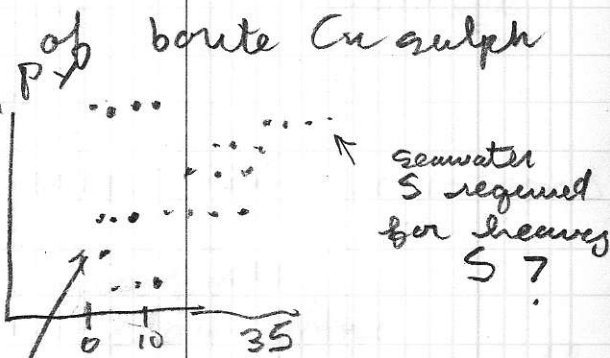 of borite Cu sulph
Py
seawater
S required
for heavy
S ?
0 10 35